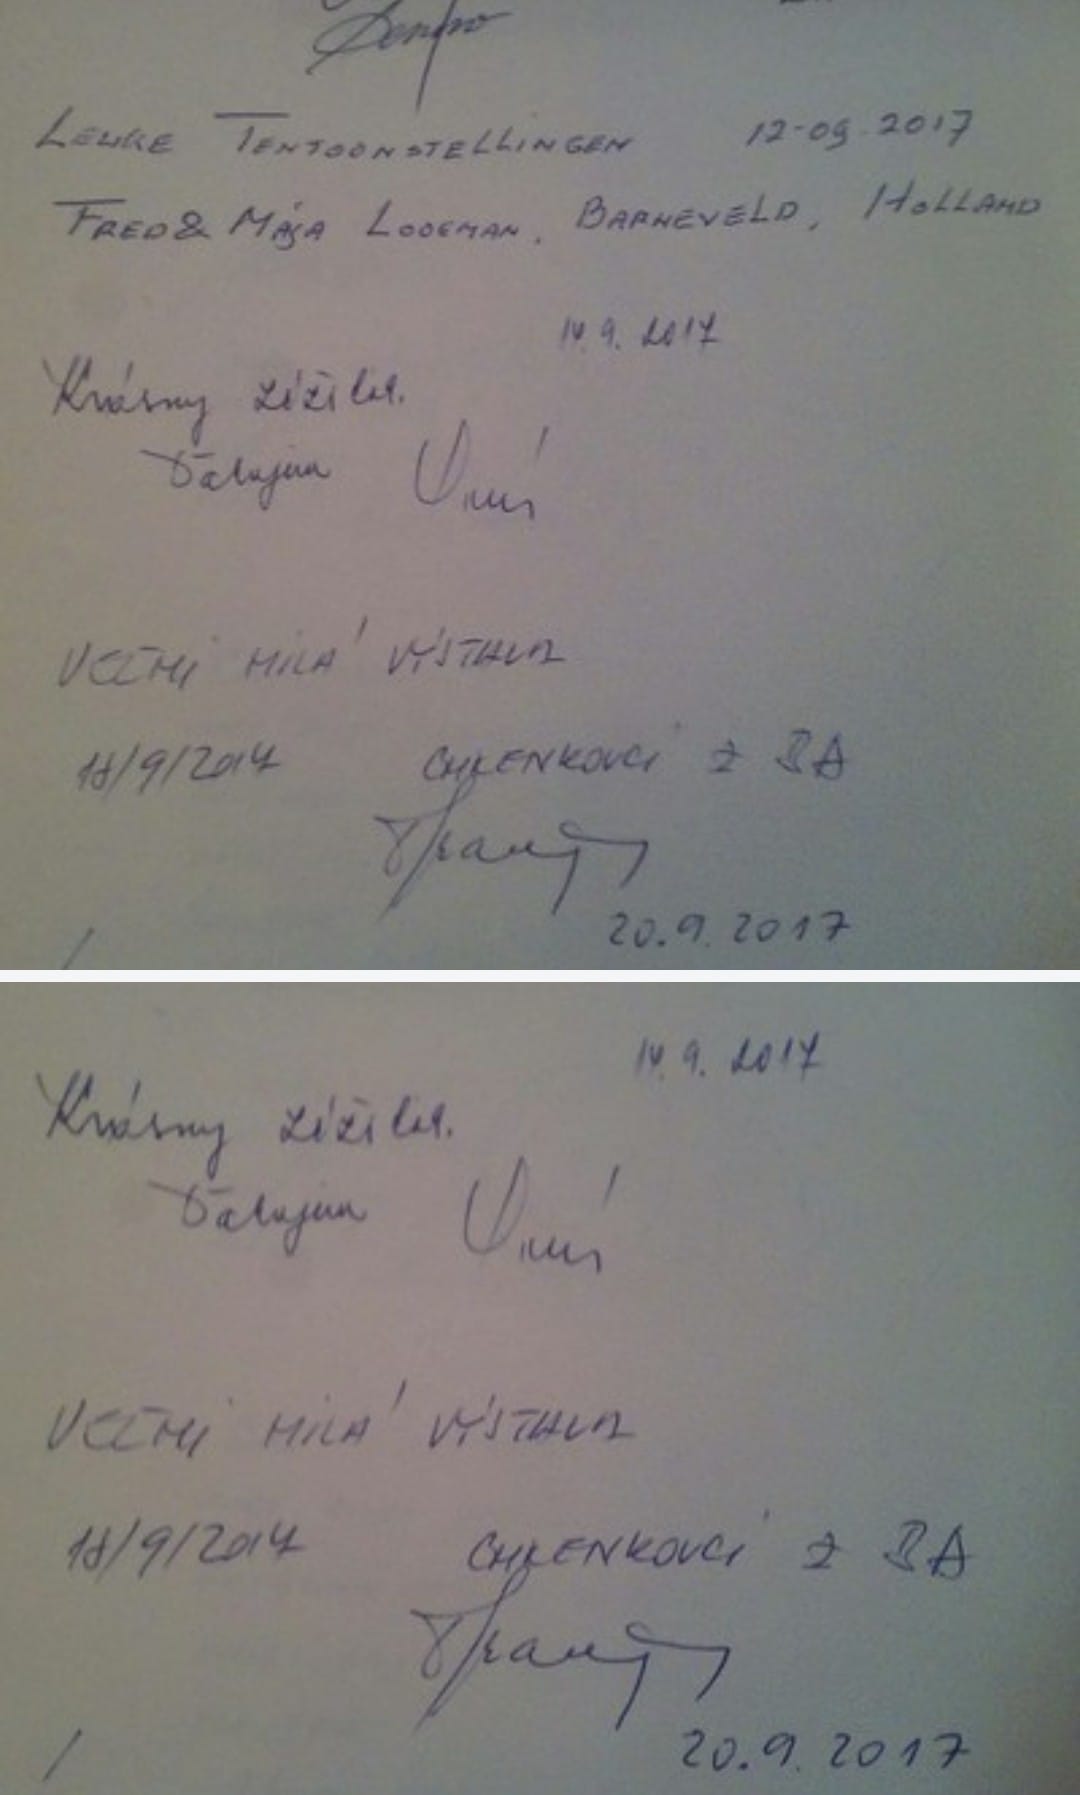 LEUKE TENTOONSTELLINGEN 12-09-2017
FRED & MAJA LODEMAN, BARNEVELD, HOLLAND
14.9.2017
Krásny zážitok.
Ďakujem
VEĽMI MILÁ VÝSTAVA
18/9/2017 CHRENKOVCI Z BA
20.9.2017
14.9.2017
Krásny zážitok.
Ďakujem
VEĽMI MILÁ VÝSTAVA
18/9/2017 CHRENKOVCI Z BA
20.9.2017